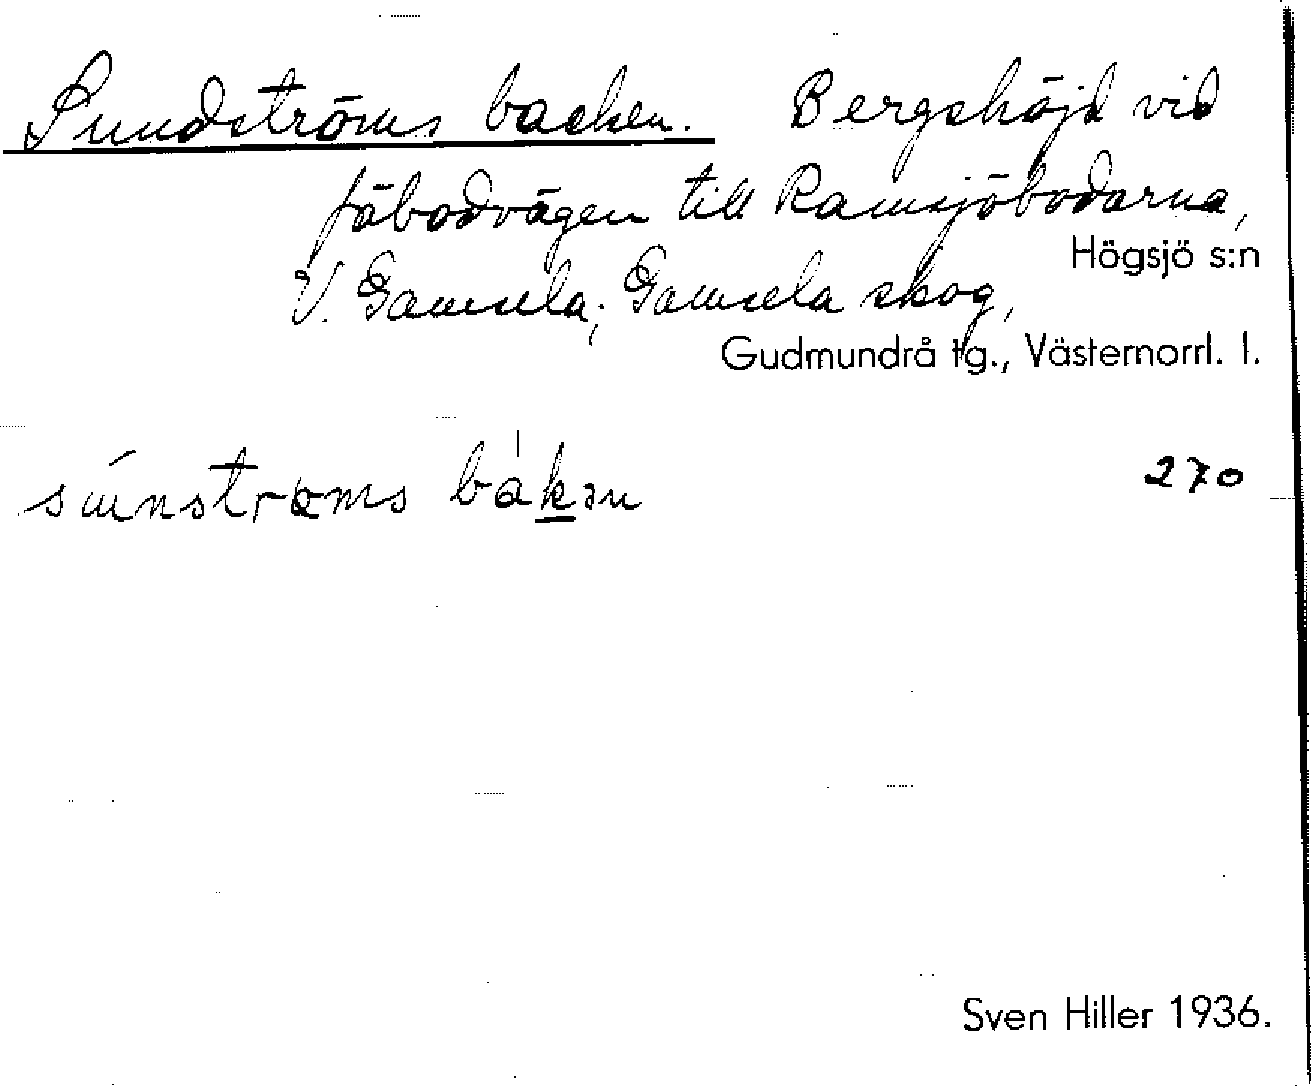 Sundströms backen. Bergshöjd vid
fäbodvägen till Ramsjöbodarna,
Högsjö s:n
V. Gamsela; Gamsela skog,
Gudmundrå tg., Västernorrl. l.
270
Sven Hiller 1936.